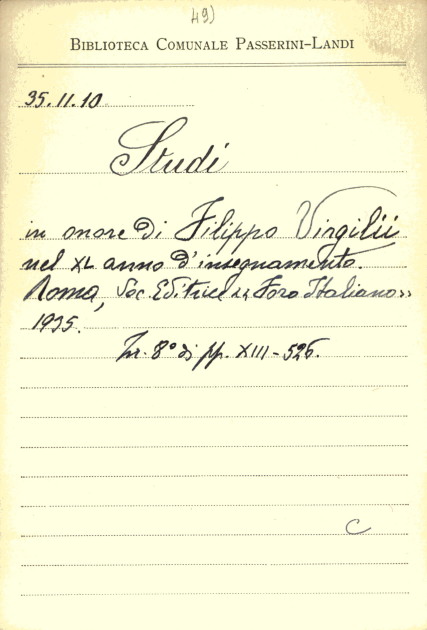 49)
BIBLIOTECA COMUNALE PASSERINI-LANDI
35.11.10
Studi
in onore di Filippo Virgilii
nel XL anno d'insegnamento.
Roma, Soc. Editrice "Foro Italiano"
1935.
In. 8° di pp. XIII-526.
C